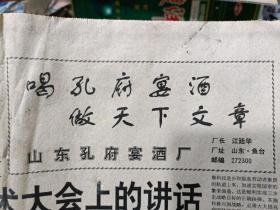 喝孔府宴酒
做天下文章
山东孔府宴酒厂
厂长 江廷华
厂址 山东·鱼台
邮编 272300
术大会上的讲话